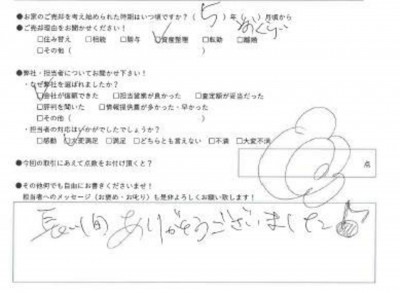 ●お家のご売却を考え始められた時期はいつ頃ですか？（ 5 ）年（ ）月頃から
●ご売却理由をお聞かせください！
□住み替え □相続 □贈与 ☑資産整理 □転勤 □離婚
□その他（ ）
●弊社・担当者についてお聞かせ下さい！
・なぜ弊社を選ばれましたか？
☑会社が信頼できた □担当営業が良かった □査定額が妥当だった
□評判を聞いた □情報提供量が多かった・早かった
□その他（ ）
・担当者の対応はいかがでしたでしょうか？
□感動 ☑大変満足 □満足 □どちらとも言えない □不満 □大変不満
●今回の取引にあえて点数をお付け頂くと？
点
●その他何でも自由にお書きくださいませ！
担当者へのメッセージ（お褒め・お叱り）も是非よろしくお願い致します！
長い間ありがとうございました